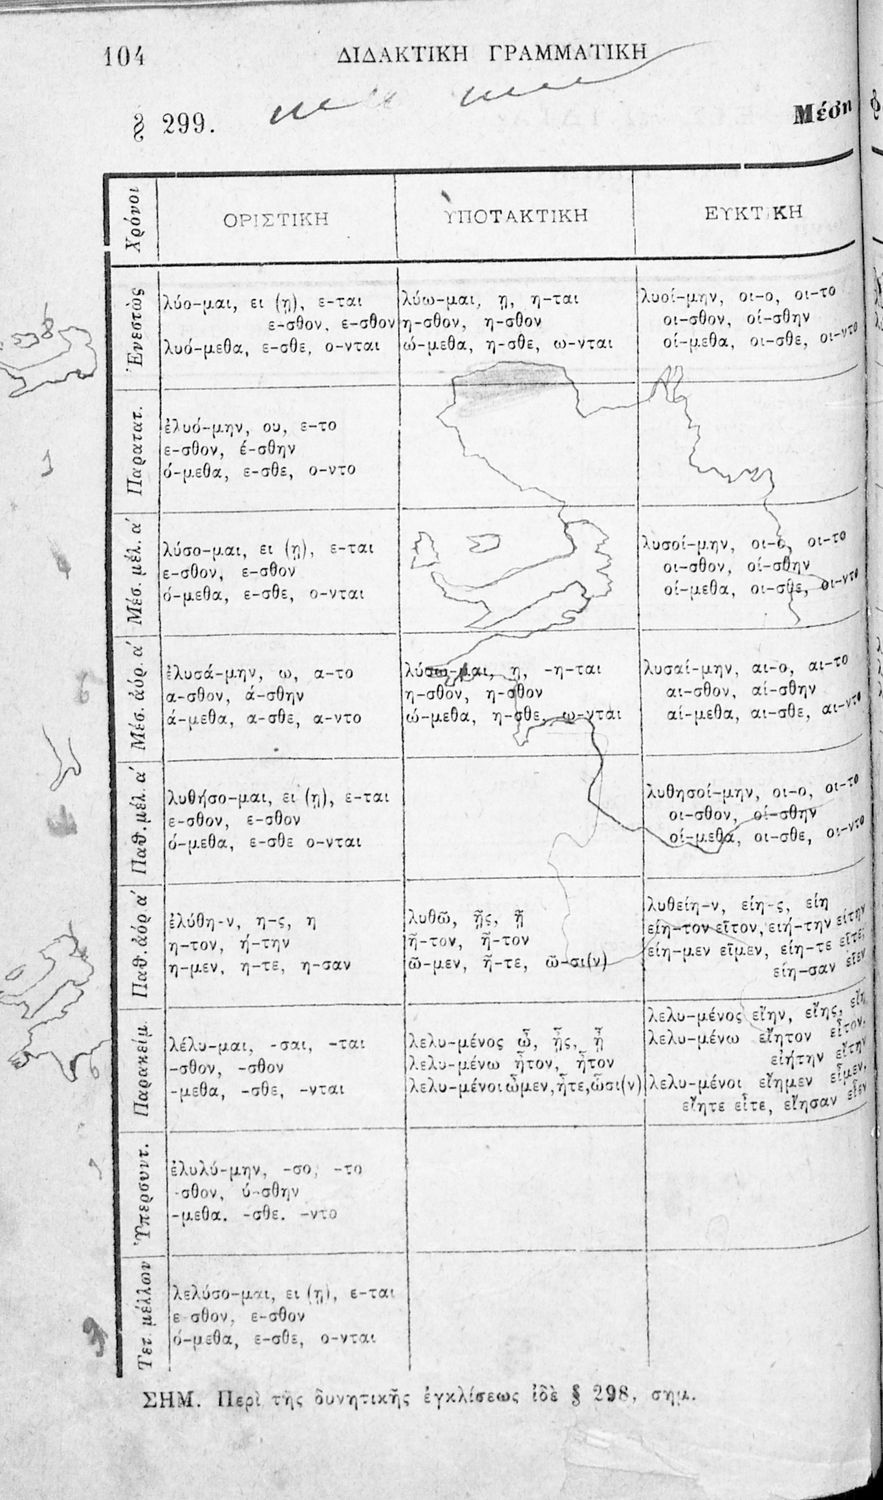 104
ΔΙΔΑΚΤΙΚΗ ΓΡΑΜΜΑΤΙΚΗ
§ 299.
Μέση
Χρόνοι
ΟΡΙΣΤΙΚΗ
ΥΠΟΤΑΚΤΙΚΗ
ΕΥΚΤΙΚΗ
Ἐνεστὼς
λύο-μαι, ει (ῃ), ε-ται
ε-σθον, ε-σθον
λυό-μεθα, ε-σθε, ο-νται
λύω-μαι, ῃ, η-ται
η-σθον, η-σθον
ώ-μεθα, η-σθε, ω-νται
λυοί-μην, οι-ο, οι-το
οι-σθον, οί-σθην
οί-μεθα, οι-σθε, οι-ντο
Παρατατ.
ἐλυό-μην, ου, ε-το
ε-σθον, έ-σθην
ό-μεθα, ε-σθε, ο-ντο
Μέσ. μέλ. α΄
λύσο-μαι, ει (ῃ), ε-ται
ε-σθον, ε-σθον
ό-μεθα, ε-σθε, ο-νται
λυσοί-μην, οι-ο, οι-το
οι-σθον, οί-σθην
οί-μεθα, οι-σθε, οι-ντο
Μέσ. ἀόρ. α΄
ἐλυσά-μην, ω, α-το
α-σθον, ά-σθην
ά-μεθα, α-σθε, α-ντο
λύσω-μαι, ῃ, -η-ται
η-σθον, η-σθον
ώ-μεθα, η-σθε, ω-νται
λυσαί-μην, αι-ο, αι-το
αι-σθον, αί-σθην
αί-μεθα, αι-σθε, αι-ντο
Παθ. μέλ. α΄
λυθήσο-μαι, ει (ῃ), ε-ται
ε-σθον, ε-σθον
ό-μεθα, ε-σθε ο-νται
λυθησοί-μην, οι-ο, οι-το
οι-σθον, οί-σθην
οί-μεθα, οι-σθε, οι-ντο
Παθ. ἀόρ α΄
ἐλύθη-ν, η-ς, η
η-τον, ή-την
η-μεν, η-τε, η-σαν
λυθῶ, ῇς, ῇ
ῆ-τον, ῆ-τον
ῶ-μεν, ῆ-τε, ῶ-σι(ν)
λυθείη-ν, είη-ς, είη
είη-τον εῖτον, ειή-την είτην
είη-μεν εῖμεν, είη-τε εῖτε,
είη-σαν εῖεν
Παρακείμ.
λέλυ-μαι, -σαι, -ται
-σθον, -σθον
-μεθα, -σθε, -νται
λελυ-μένος ὦ, ᾖς, ᾖ
λελυ-μένω ἦτον, ἦτον
λελυ-μένοι ὦμεν, ἦτε, ὦσι(ν)
λελυ-μένος εἴην, εἴης, εἴη
λελυ-μένω εἴητον εἶτον,
εἰήτην εἴτην
λελυ-μένοι εἴημεν εἶμεν,
εἴητε εἶτε, εἴησαν εἶεν
Ὑπερσυντ.
ἐλυλύ-μην, -σο, -το
-σθον, ύ-σθην
-μεθα. -σθε. -ντο
Τετ. μέλλων
λελύσο-μαι, ει (ῃ), ε-ται
ε σθον, ε-σθον
ό-μεθα, ε-σθε, ο-νται
ΣΗΜ. Περὶ τῆς δυνητικῆς ἐγκλίσεως ἰδὲ § 298, σημ.